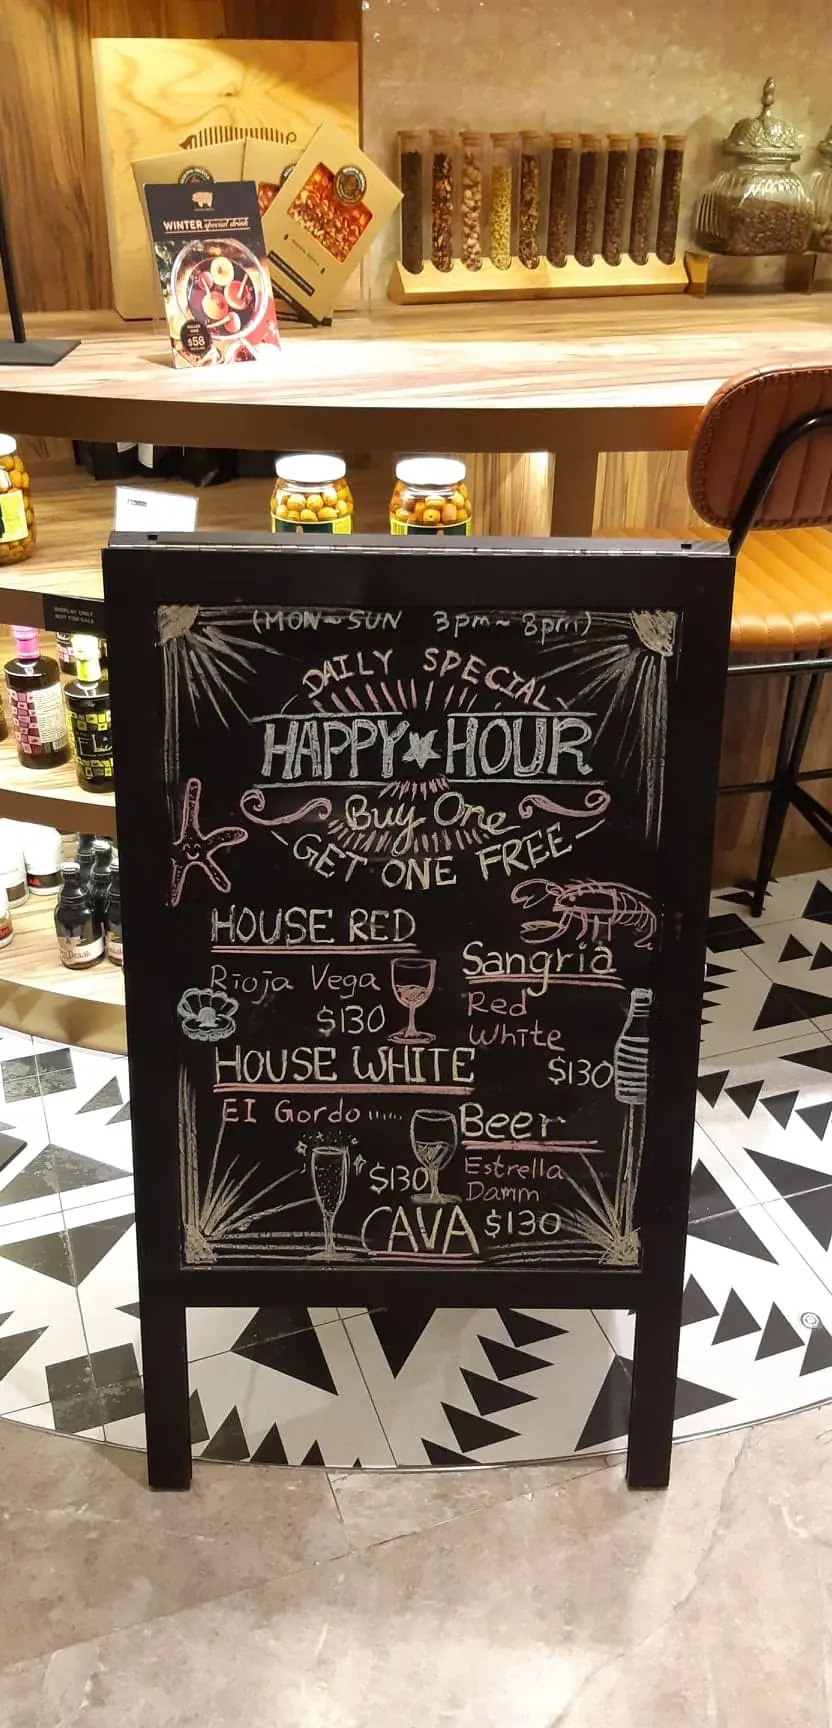 WINTER special drink
$58
DISPLAY ONLY
NOT FOR SALE
(MON~SUN 3pm~8pm)
DAILY SPECIAL
HAPPY★HOUR
Buy One
GET ONE FREE
HOUSE RED
Rioja Vega
$130
HOUSE WHITE
EI Gordo
$130
CAVA
Sangria
Red
White
$130
Beer
Estrella
Damm
$130